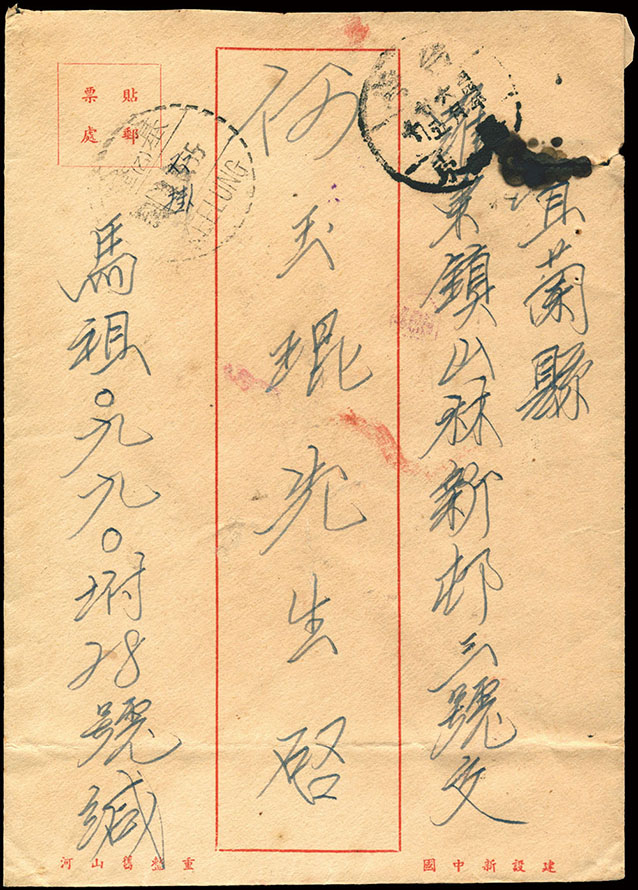 宜蘭縣
羅東鎮山林新邨三號交
何玉琨先生啓
馬祖〇九九〇坿28號緘
貼郵
票處
KEELUNG
掛
建設新中國
重整舊山河